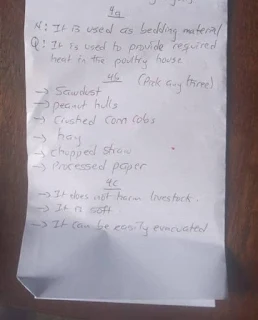 4a
N: It is used as bedding material
Q: It is used to provide required
heat in the poultry house
4b (Pick any three)
→ Sawdust
→ peanut hulls
→ Crushed Corn cobs
→ hay
→ chopped straw
→ Processed paper
4c
→ It does not harm livestock.
→ It is soft
→ It can be easily evacuated